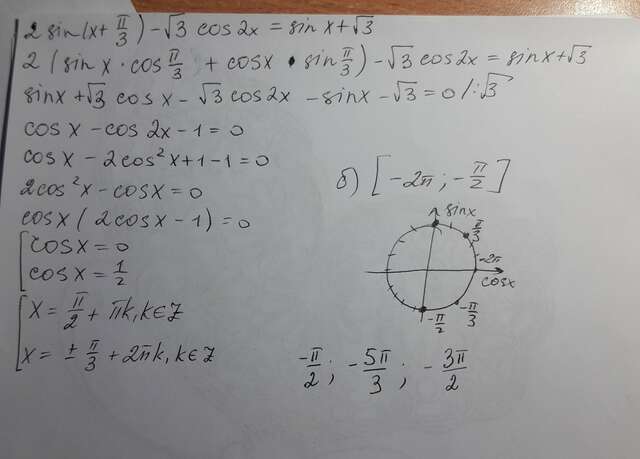 2 sin(x + π/3) − √3 cos 2x = sin x + √3
2 (sin x · cos π/3 + cos x · sin π/3) − √3 cos 2x = sin x + √3
sin x + √3 cos x − √3 cos 2x − sin x − √3 = 0 / : √3
cos x − cos 2x − 1 = 0
cos x − 2cos²x + 1 − 1 = 0
2cos²x − cos x = 0
cos x (2cos x − 1) = 0
[ cos x = 0
cos x = 1/2
[ x = π/2 + πk, k ∈ Z
x = ± π/3 + 2πk, k ∈ Z
б) [−2π ; −π/2]
sin x
π/3
−2π
cos x
−π/3
−π/2
−π/2 ; −5π/3 ; −3π/2